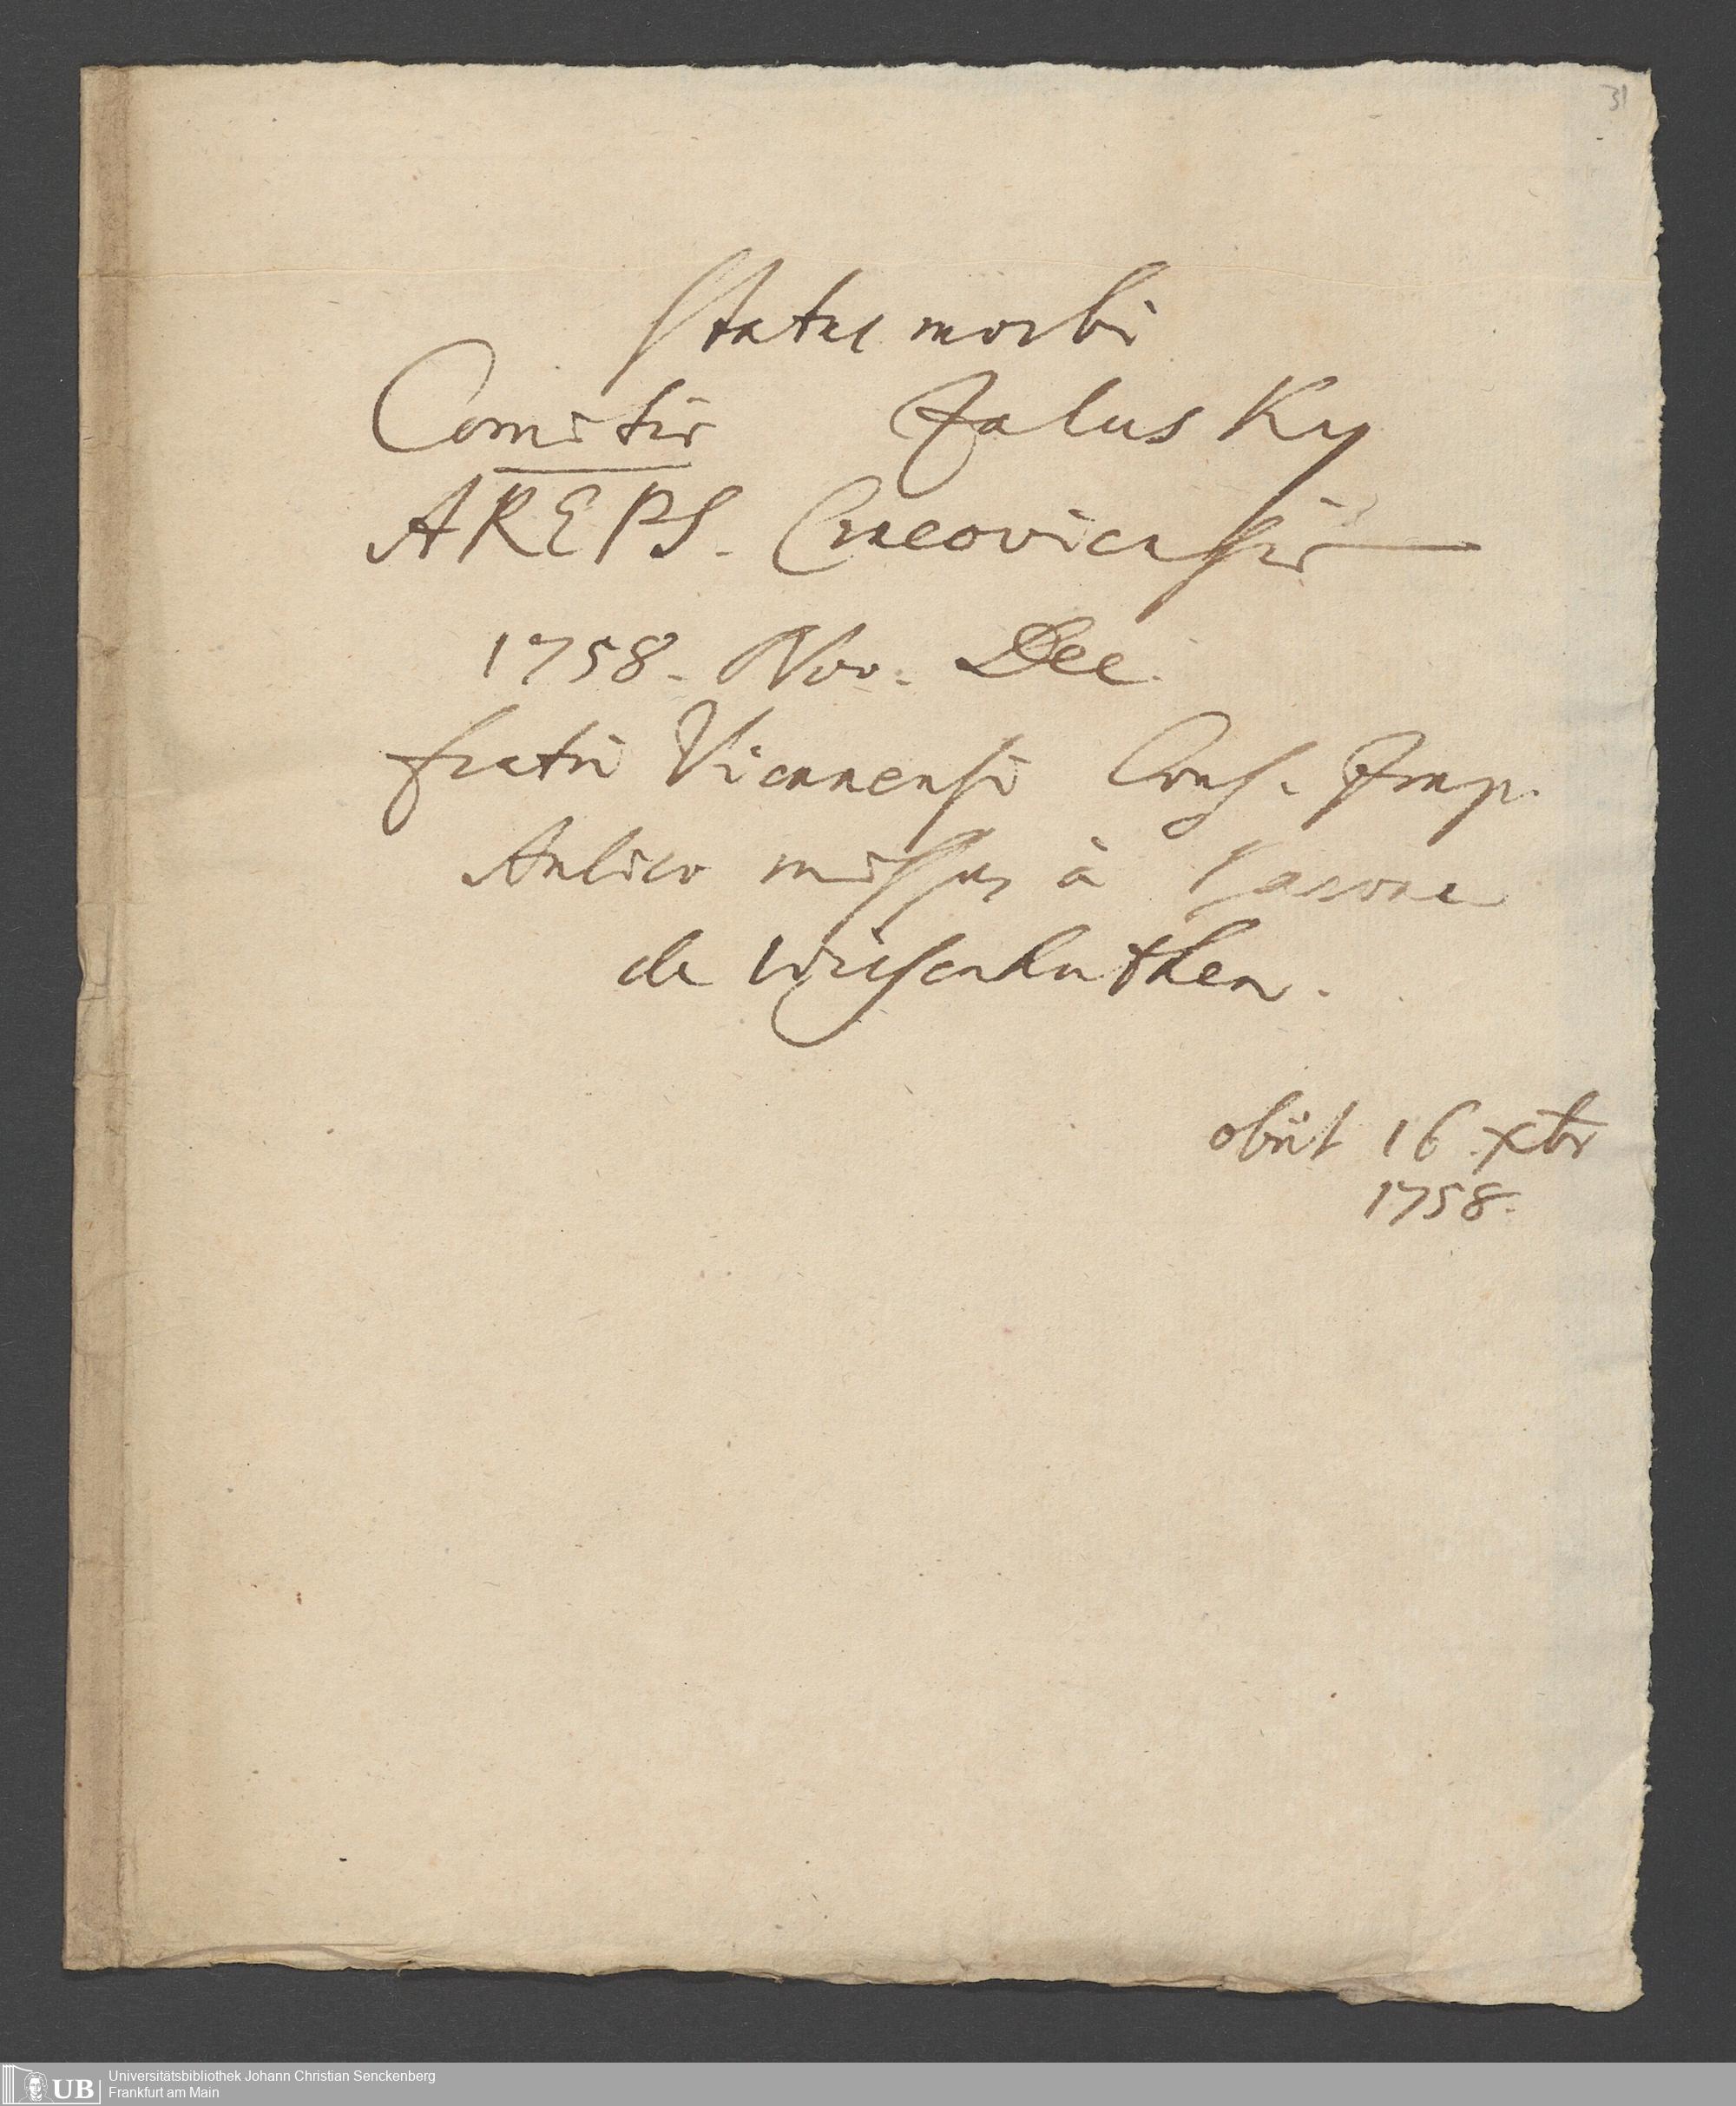 31
Status morbi
Comitis Zalusky
AREPS. Cracoviensis
1758. Nov. Dec.
fratri Viennensi Cons. Imp.
Aulico missus à Barone
de Wiesenhuthen.
obiit 16 xbr
1758.
UB
Universitätsbibliothek Johann Christian Senckenberg
Frankfurt am Main